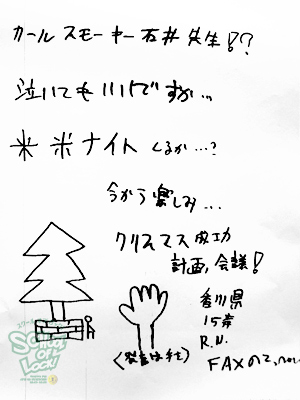 カールスモーキー石井先生!?
泣いてもいいですか…
米米ナイト くるか…?
今から楽しみ…
クリスマス成功
計画、会議!
香川県
15才
R.N.
FAXの
(発言は手を)
SCHOOL OF LOCK!